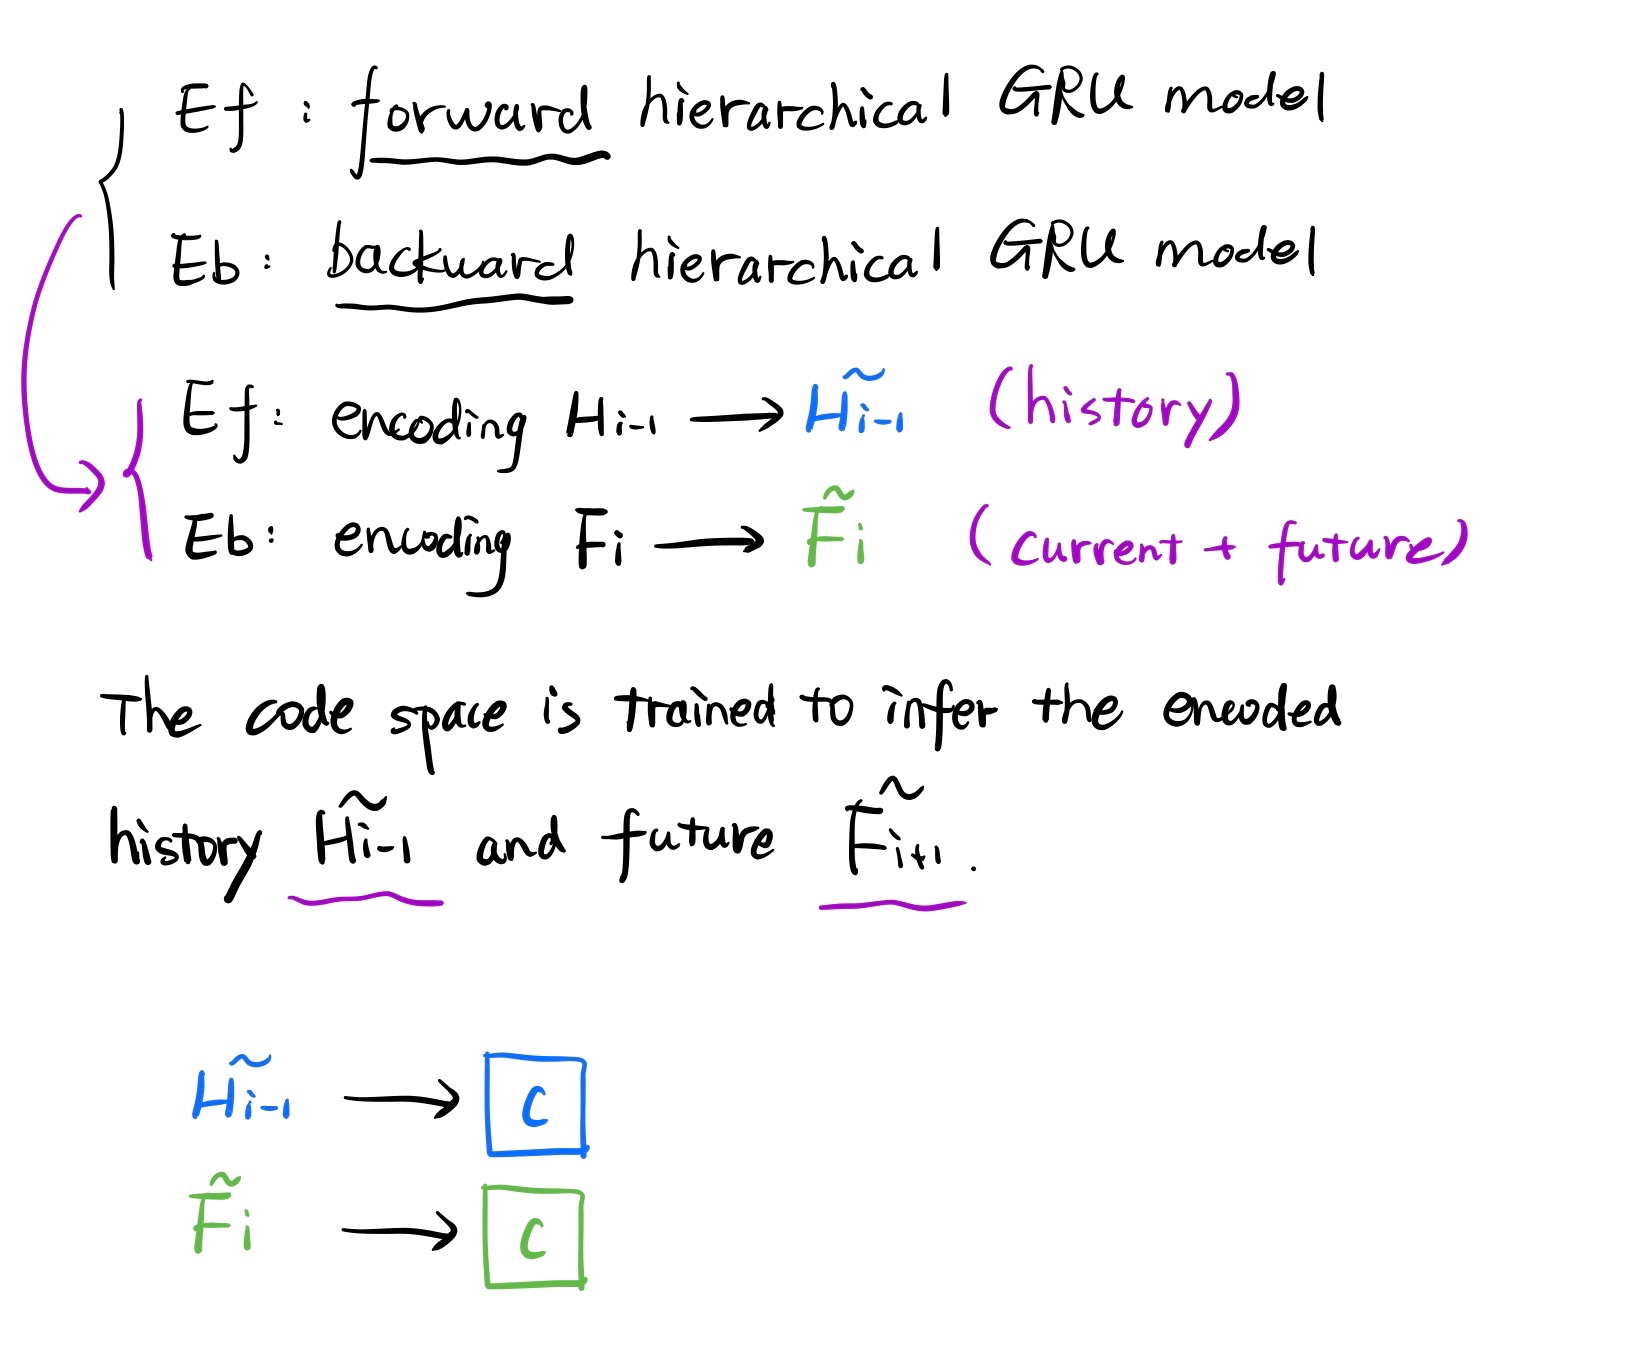 Ef : forward hierarchical GRU model
Eb : backward hierarchical GRU model
Ef : encoding Hi-1 → H̃i-1 (history)
Eb : encoding Fi → F̃i (current + future)
The code space is trained to infer the encoded
history H̃i-1 and future F̃i+1 .
H̃i-1 → C
F̃i → C